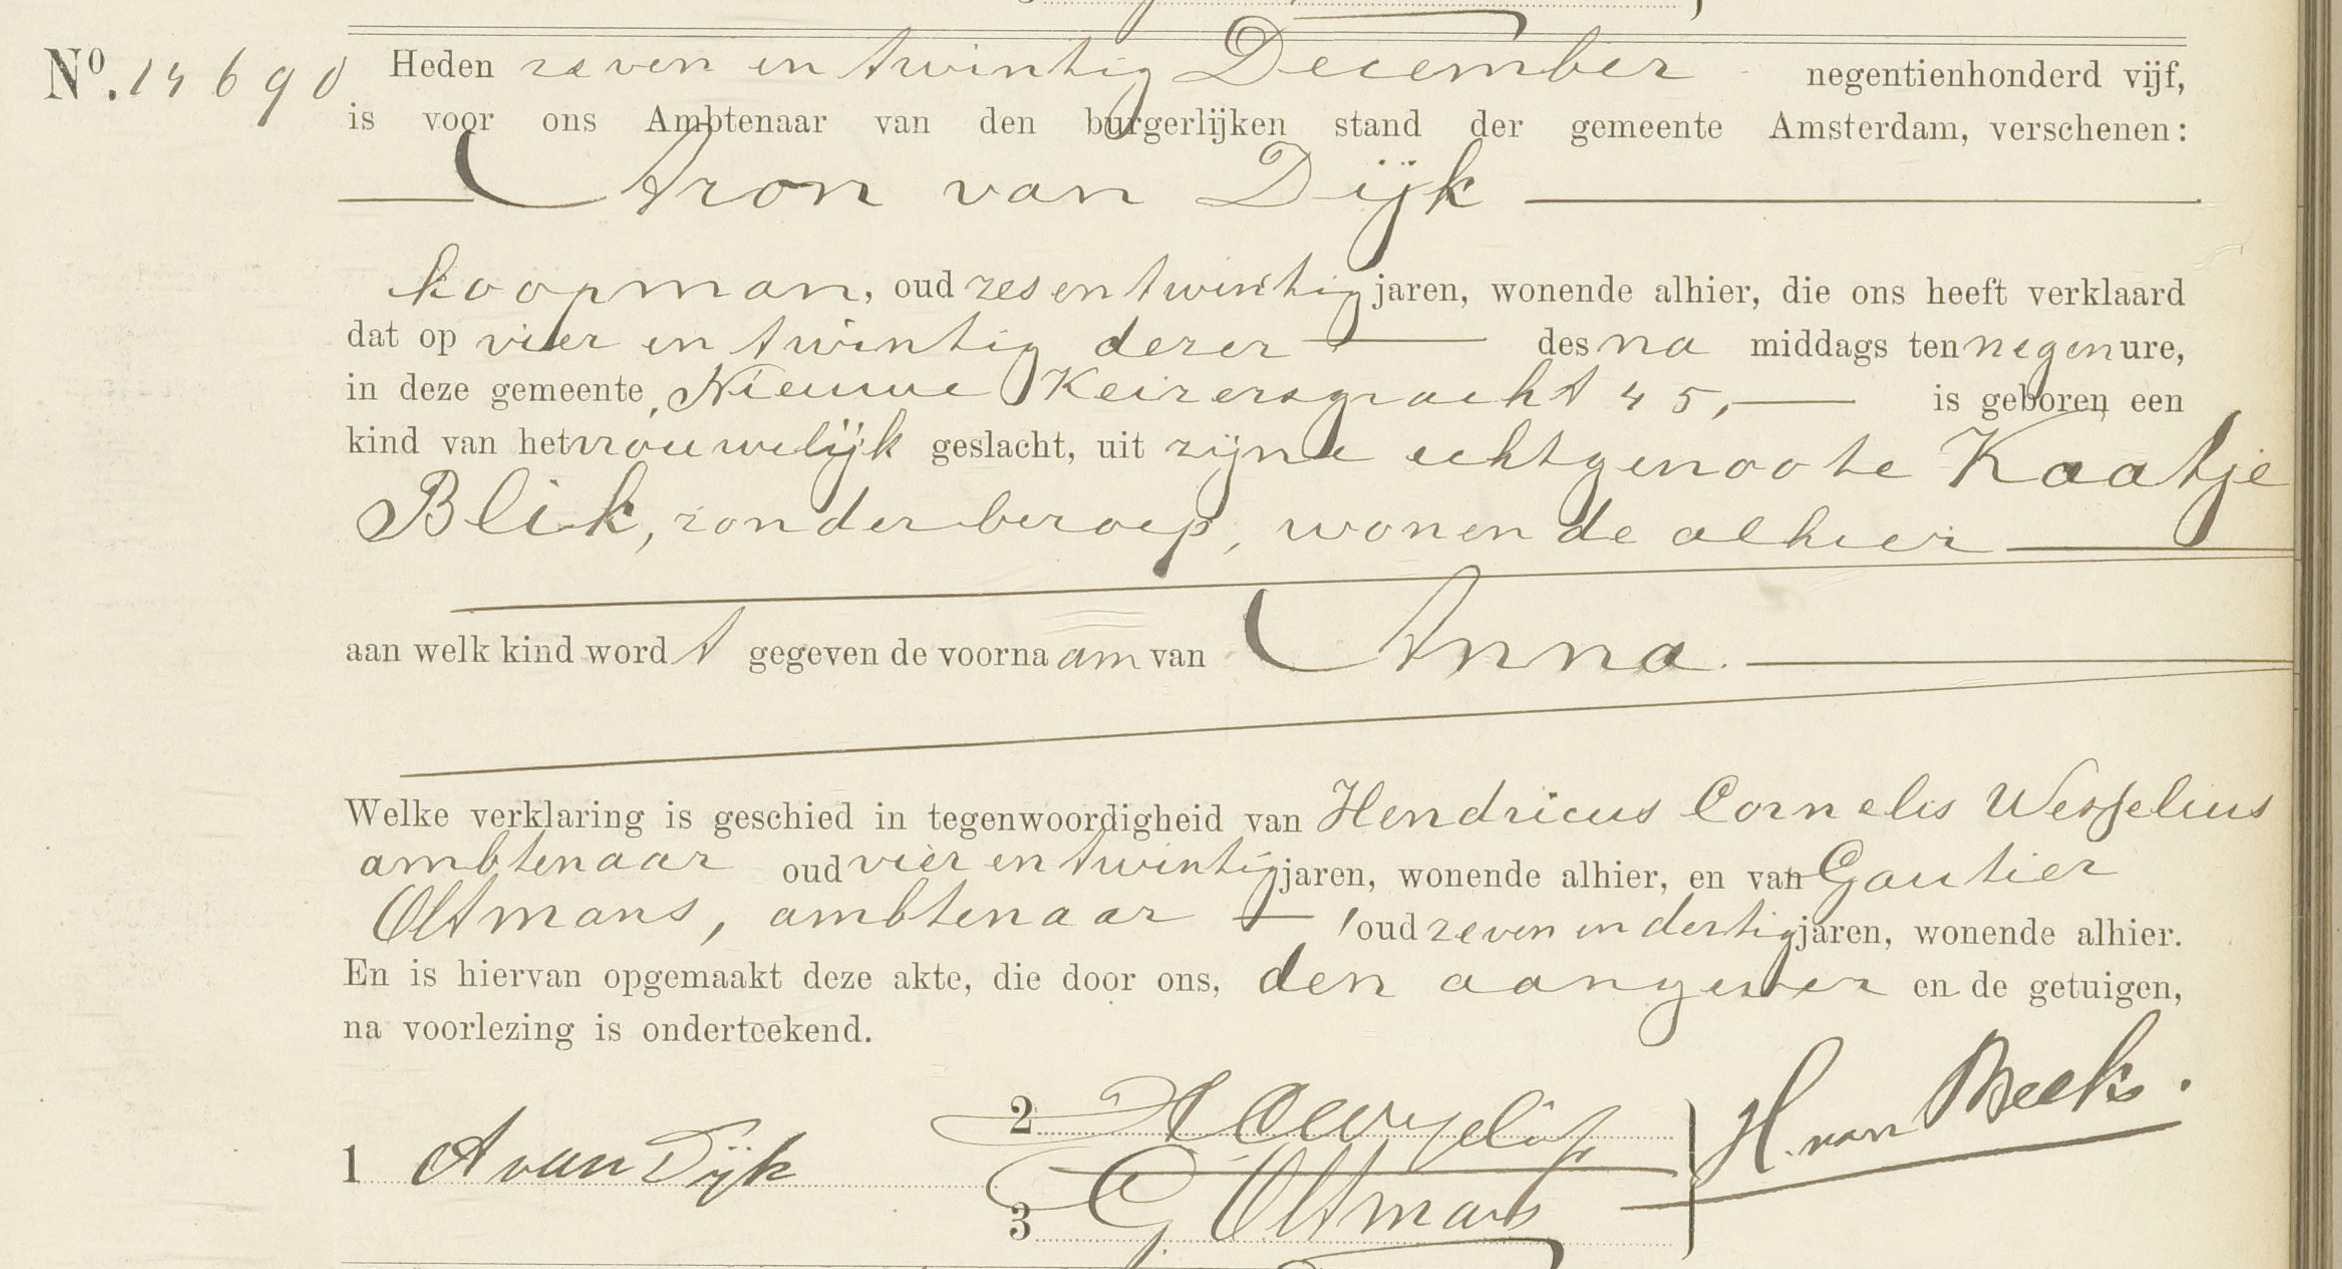 No. 14690 Heden zeven en twintig December negentienhonderd vijf,
is voor ons Ambtenaar van den burgerlijken stand der gemeente Amsterdam, verschenen:
Aron van Dijk
koopman, oud zes en twintig jaren, wonende alhier, die ons heeft verklaard
dat op vier en twintig dezer des na middags ten negen ure,
in deze gemeente, Nieuwe Keizersgracht 45, is geboren een
kind van het vrouwelijk geslacht, uit zijne echtgenoote Kaatje
Blik, zonder beroep, wonende alhier
aan welk kind wordt gegeven de voornaam van Anna.
Welke verklaring is geschied in tegenwoordigheid van Hendricus Cornelis Wesselius
ambtenaar oud vier en twintig jaren, wonende alhier, en van Gautier
Oltmans, ambtenaar, oud zeven en dertig jaren, wonende alhier.
En is hiervan opgemaakt deze akte, die door ons, den aangever en de getuigen,
na voorlezing is onderteekend.
1 A van Dijk
2 HCWesselius
3 G. Oltmans
H. van Beek.